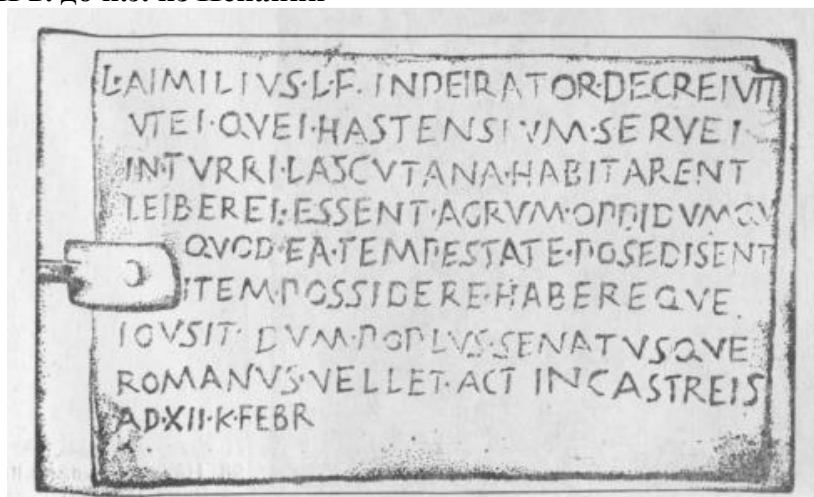 L·AIMILIVS·L·F·INPEIRATOR·DECREIVIT
VTEI·QVEI·HASTENSIVM·SERVEI
IN·TVRRI·LASCVTANA·HABITARENT
LEIBEREI·ESSENT·AGRVM·OPPIDVMQV
QVOD·EA·TEMPESTATE·POSEDISENT
ITEM·POSSIDERE·HABEREQVE
IOVSIT·DVM·POPLVS·SENATVSQVE
ROMANVS·VELLET·ACT·IN·CASTREIS
A·D·XII·K·FEBR